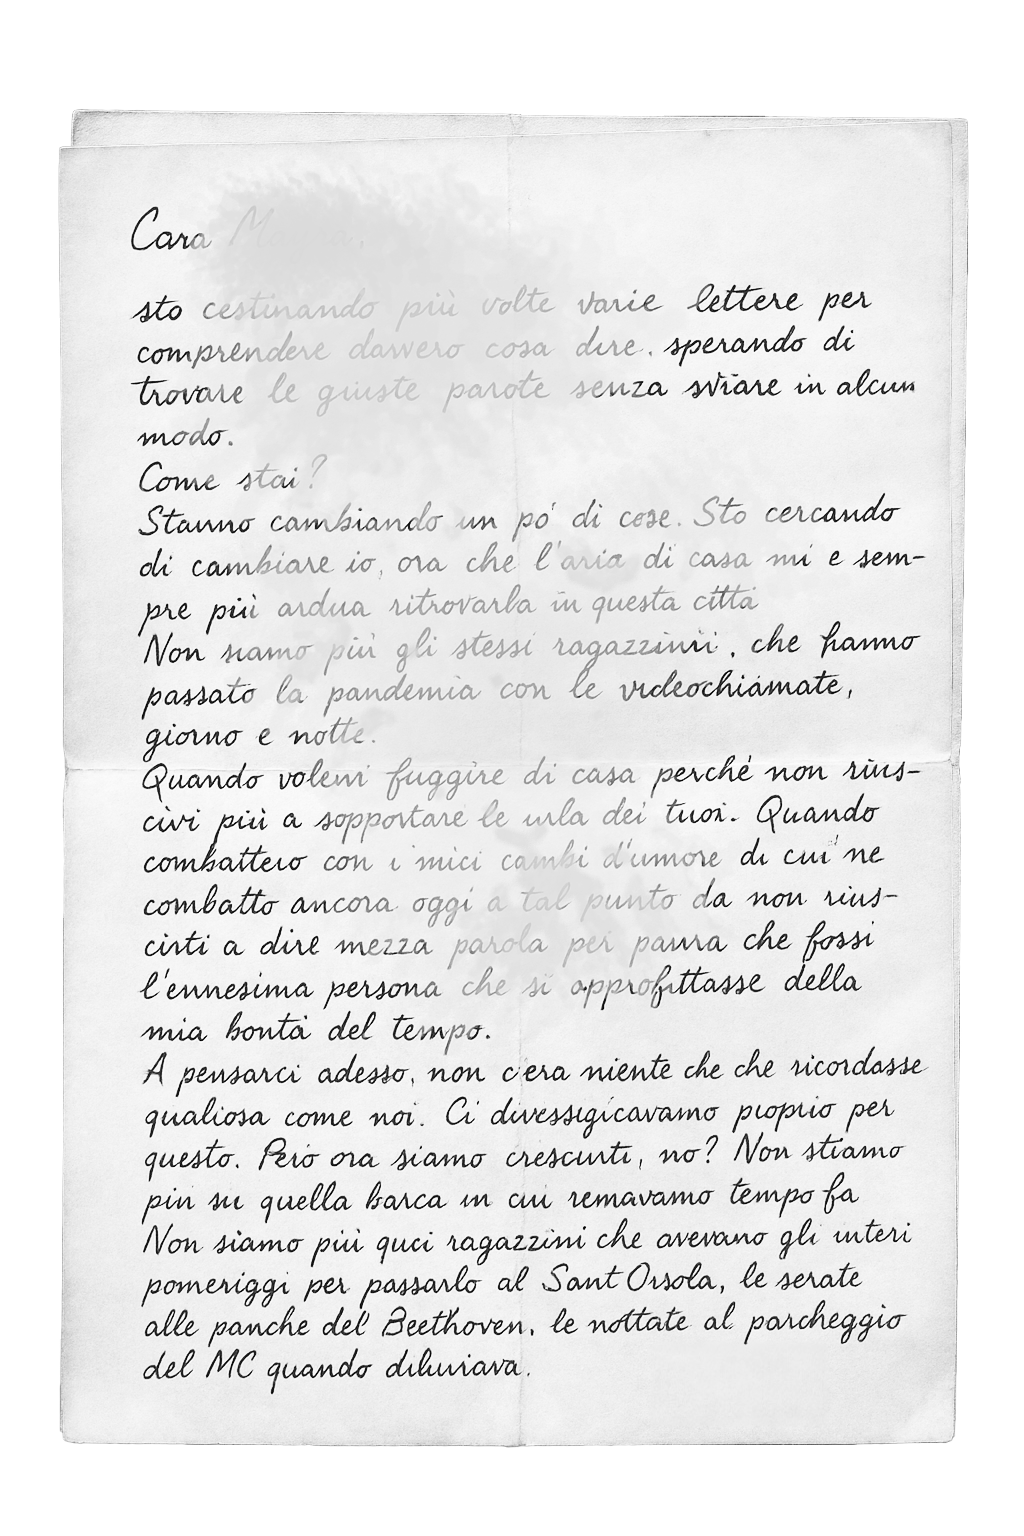 Cara
sto cestinando più volte varie lettere per
comprendere davvero cosa dire. sperando di
trovare le giuste parote senza sviare in alcun
modo.
Come stai?
Stanno cambiando un pó di cose. Sto cercando
di cambiare io, ora che l'aria di casa mi e sem-
pre più ardua ritrovarla in questa città
Non siamo più gli stessi ragazzinii, che hanno
passato la pandemia con le videochiamate,
giorno e notte.
Quando volevi fuggire di casa perché non rius-
civi più a sopportare le urla dei tuoi. Quando
combatteio con i miei cambi d'umore di cui ne
combatto ancora oggi a tal punto da non rius-
cirti a dire mezza parola per paura che fossi
l'ennesima persona che si approfittasse della
mia bontà del tempo.
A pensarci adesso, non c'era niente che che ricordasse
qualiosa come noi. Ci divessigicavamo proprio per
questo. Però ora siamo cresciuti, no? Non stiamo
più su quella barca in cui remavamo tempo fa
Non siamo più quei ragazzini che avevano gli interi
pomeriggi per passarlo al Sant'Orsola, le serate
alle panche del Beethoven, le nottate al parcheggio
del MC quando diluviava.